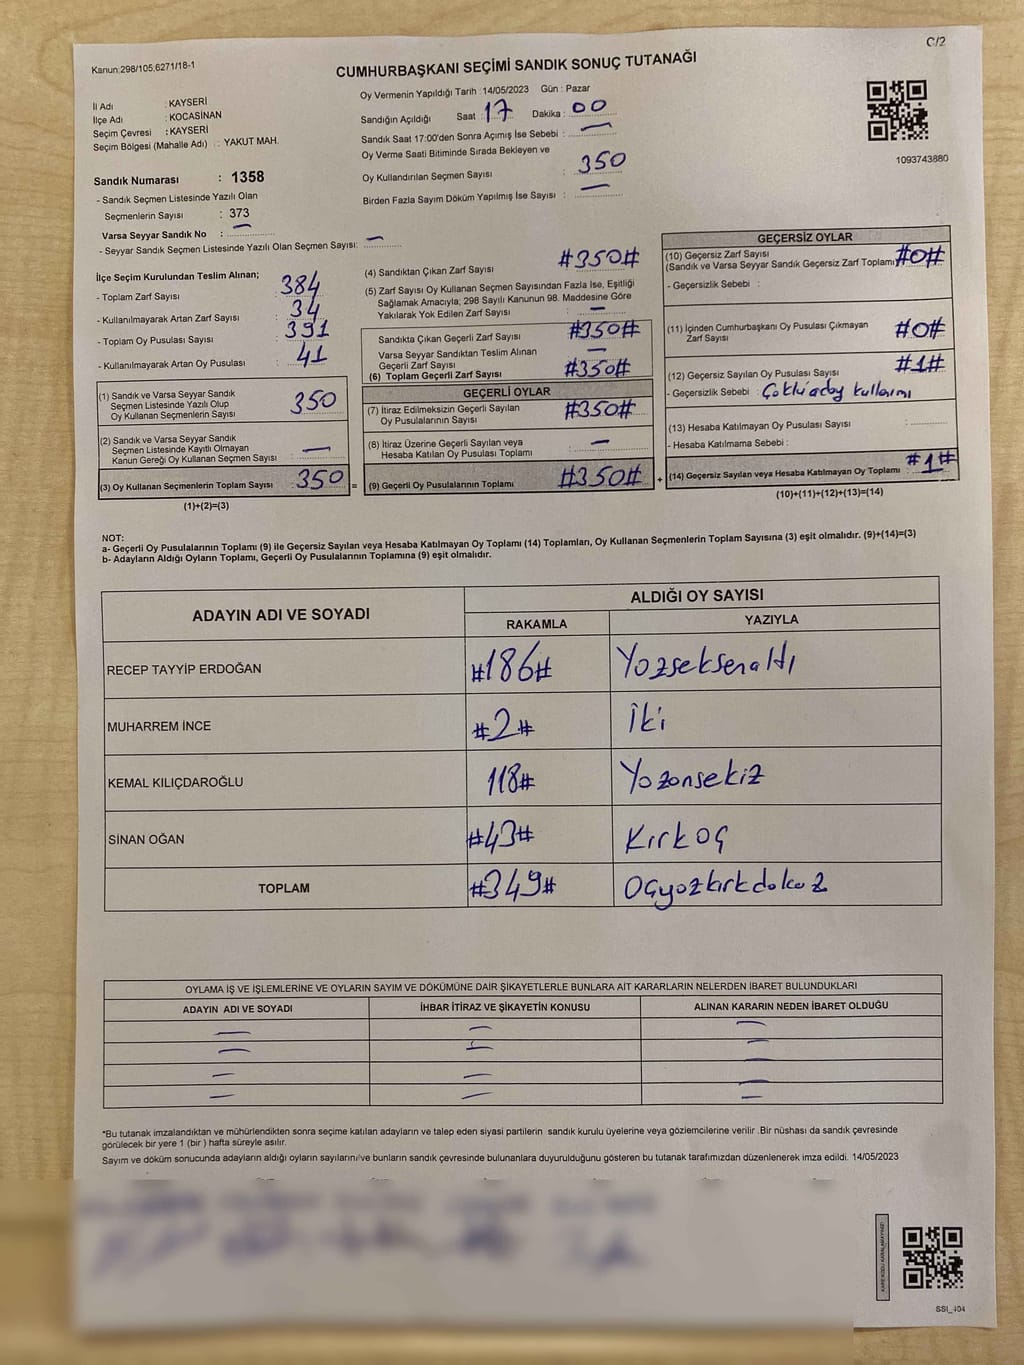 C/2
Kanun:298/105,6271/18-1
CUMHURBAŞKANI SEÇİMİ SANDIK SONUÇ TUTANAĞI
İl Adı : KAYSERİ
İlçe Adı : KOCASİNAN
Seçim Çevresi : KAYSERİ
Seçim Bölgesi (Mahalle Adı) : YAKUT MAH.
Sandık Numarası : 1358
- Sandık Seçmen Listesinde Yazılı Olan
Seçmenlerin Sayısı : 373
Varsa Seyyar Sandık No : —
- Seyyar Sandık Seçmen Listesinde Yazılı Olan Seçmen Sayısı: —
Oy Vermenin Yapıldığı Tarih :14/05/2023 Gün : Pazar
Sandığın Açıldığı Saat : 17 Dakika : 00
Sandık Saat 17:00'den Sonra Açımış İse Sebebi : —
Oy Verme Saati Bitiminde Sırada Bekleyen ve
Oy Kullandırılan Seçmen Sayısı : 350
Birden Fazla Sayım Döküm Yapılmış İse Sayısı : —
1093743880
İlçe Seçim Kurulundan Teslim Alınan;
- Toplam Zarf Sayısı : 384
- Kullanılmayarak Artan Zarf Sayısı : 34
- Toplam Oy Pusulası Sayısı : 391
- Kullanılmayarak Artan Oy Pusulası : 41
(1) Sandık ve Varsa Seyyar Sandık
Seçmen Listesinde Yazılı Olup
Oy Kullanan Seçmenlerin Sayısı : 350
(2) Sandık ve Varsa Seyyar Sandık
Seçmen Listesinde Kayıtlı Olmayan
Kanun Gereği Oy Kullanan Seçmen Sayısı : —
(3) Oy Kullanan Seçmenlerin Toplam Sayısı : 350 =
(1)+(2)=(3)
(4) Sandıktan Çıkan Zarf Sayısı : #350#
(5) Zarf Sayısı Oy Kullanan Seçmen Sayısından Fazla İse, Eşitliği
Sağlamak Amacıyla; 298 Sayılı Kanunun 98. Maddesine Göre
Yakılarak Yok Edilen Zarf Sayısı : —
Sandıkta Çıkan Geçerli Zarf Sayısı : #350#
Varsa Seyyar Sandıktan Teslim Alınan
Geçerli Zarf Sayısı : —
(6) Toplam Geçerli Zarf Sayısı : #350#
GEÇERLİ OYLAR
(7) İtiraz Edilmeksizin Geçerli Sayılan
Oy Pusulalarının Sayısı : #350#
(8) İtiraz Üzerine Geçerli Sayılan veya
Hesaba Katılan Oy Pusulası Toplamı : —
(9) Geçerli Oy Pusulalarının Toplamı : #350# +
GEÇERSİZ OYLAR
(10) Geçersiz Zarf Sayısı
(Sandık ve Varsa Seyyar Sandık Geçersiz Zarf Toplamı) #0#
- Geçersizlik Sebebi :
(11) İçinden Cumhurbaşkanı Oy Pusulası Çıkmayan
Zarf Sayısı : #0#
(12) Geçersiz Sayılan Oy Pusulası Sayısı : #1#
- Geçersizlik Sebebi : Çoklu aday kullanımı
(13) Hesaba Katılmayan Oy Pusulası Sayısı :
- Hesaba Katılmama Sebebi :
(14) Geçersiz Sayılan veya Hesaba Katılmayan Oy Toplamı : #1#
(10)+(11)+(12)+(13)=(14)
NOT:
a- Geçerli Oy Pusulalarının Toplamı (9) ile Geçersiz Sayılan veya Hesaba Katılmayan Oy Toplamı (14) Toplamları, Oy Kullanan Seçmenlerin Toplam Sayısına (3) eşit olmalıdır. (9)+(14)=(3)
b- Adayların Aldığı Oyların Toplamı, Geçerli Oy Pusulalarının Toplamına (9) eşit olmalıdır.
ADAYIN ADI VE SOYADI ALDIĞI OY SAYISI
RAKAMLA YAZIYLA
RECEP TAYYİP ERDOĞAN #186# Yözseksenaltı
MUHARREM İNCE #2# İki
KEMAL KILIÇDAROĞLU 118# Yözonsekiz
SİNAN OĞAN #43# Kırköç
TOPLAM #349# Öçyözkırkdokuz
OYLAMA İŞ VE İŞLEMLERİNE VE OYLARIN SAYIM VE DÖKÜMÜNE DAİR ŞİKAYETLERLE BUNLARA AİT KARARLARIN NELERDEN İBARET BULUNDUKLARI
ADAYIN ADI VE SOYADI İHBAR İTİRAZ VE ŞİKAYETİN KONUSU ALINAN KARARIN NEDEN İBARET OLDUĞU
— — —
— — —
— — —
— — —
*Bu tutanak imzalandıktan ve mühürlendikten sonra seçime katılan adayların ve talep eden siyasi partilerin sandık kurulu üyelerine veya gözlemcilerine verilir .Bir nüshası da sandık çevresinde
görülecek bir yere 1 (bir ) hafta süreyle asılır.
Sayım ve döküm sonucunda adayların aldığı oyların sayılarını ve bunların sandık çevresinde bulunanlara duyurulduğunu gösteren bu tutanak tarafımızdan düzenlenerek imza edildi. 14/05/2023